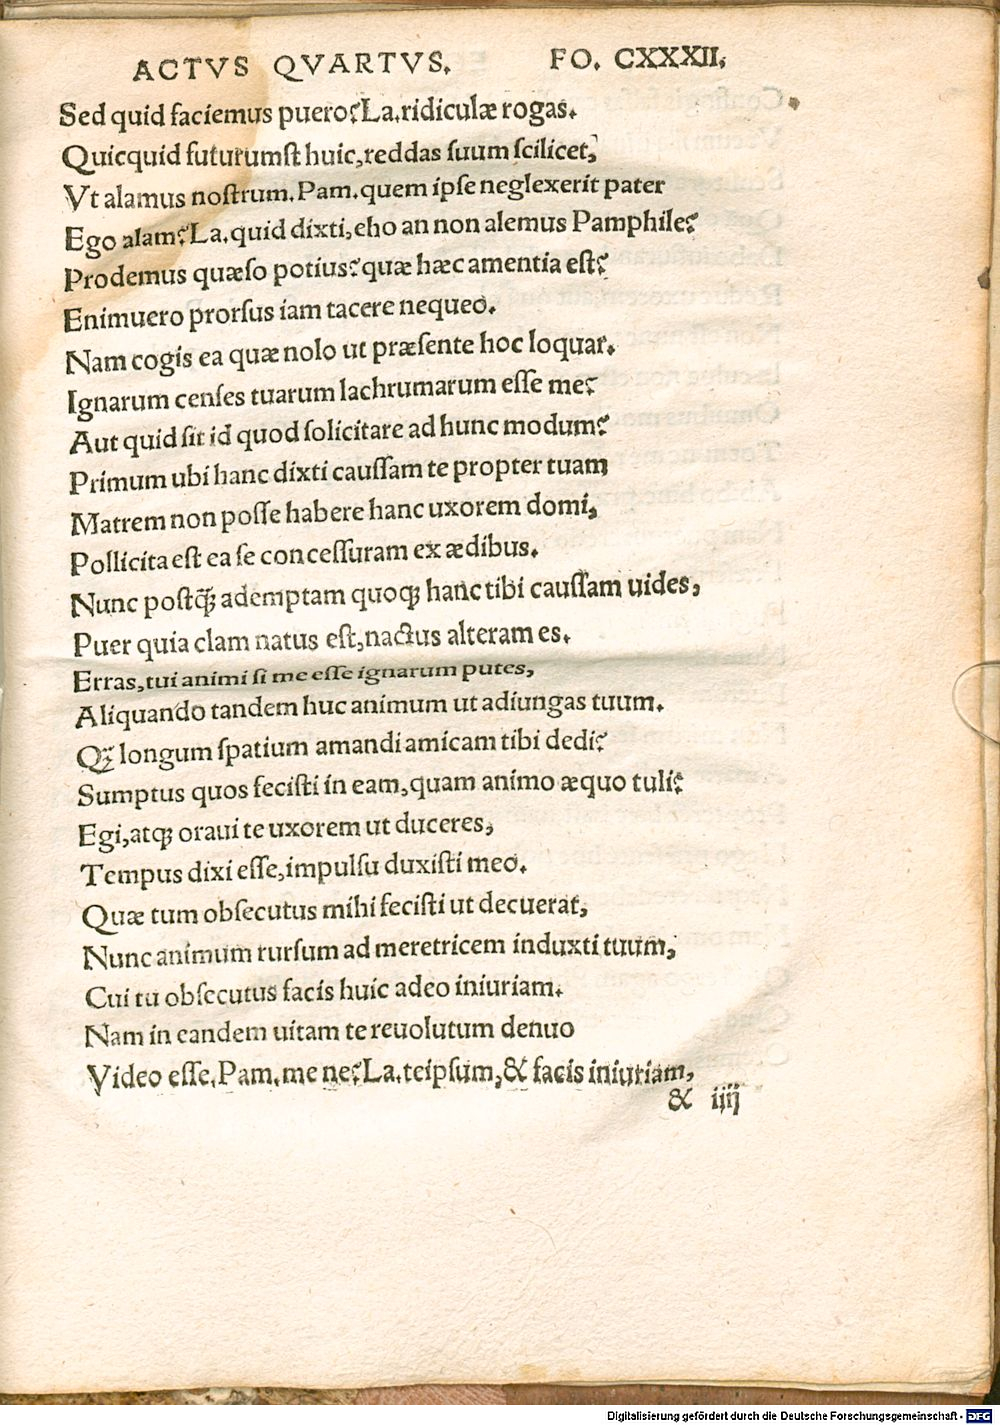 ACTVS QVARTVS. FO. CXXXII.
Sed quid faciemus puero? La. ridiculæ rogas.
Quicquid futurumst huic, reddas suum scilicet,
Vt alamus nostrum. Pam. quem ipse neglexerit pater
Ego alam? La. quid dixti, eho an non alemus Pamphile?
Prodemus quæso potius? quæ hæc amentia est?
Enimuero prorsus iam tacere nequeo.
Nam cogis ea quæ nolo ut præsente hoc loquar.
Ignarum censes tuarum lachrumarum esse me?
Aut quid sit id quod solicitare ad hunc modum?
Primum ubi hanc dixti caussam te propter tuam
Matrem non posse habere hanc uxorem domi,
Pollicita est ea se concessuram ex ædibus.
Nunc postꝗ̃ ademptam quoqꝫ hanc tibi caussam uides,
Puer quia clam natus est, nactus alteram es.
Erras, tui animi si me esse ignarum putes,
Aliquando tandem huc animum ut adiungas tuum.
Qꝫ̃ longum spatium amandi amicam tibi dedi?
Sumptus quos fecisti in eam, quam animo æquo tuli?
Egi, atqꝫ oraui te uxorem ut duceres,
Tempus dixi esse, impulsu duxisti meo.
Quæ tum obsecutus mihi fecisti ut decuerat,
Nunc animum rursum ad meretricem induxti tuum,
Cui tu obsecutus facis huic adeo iniuriam.
Nam in eandem uitam te reuolutum denuo
Video esse. Pam. me ne? La. teipsum, & facis iniuriam,
& iiij
Digitalisierung gefördert durch die Deutsche Forschungsgemeinschaft - DFG